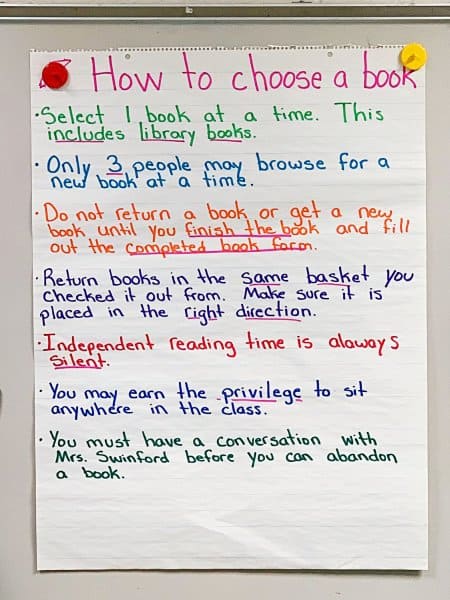 How to choose a book
·Select 1 book at a time. This
includes library books.
· Only 3 people may browse for a
new book at a time.
· Do not return a book or get a new
book until you finish the book and fill
out the completed book form.
·Return books in the same basket you
checked it out from. Make sure it is
placed in the right direction.
·Independent reading time is always
silent.
· You may earn the privilege to sit
anywhere in the class.
· You must have a conversation with
Mrs. Swinford before you can abandon
a book.